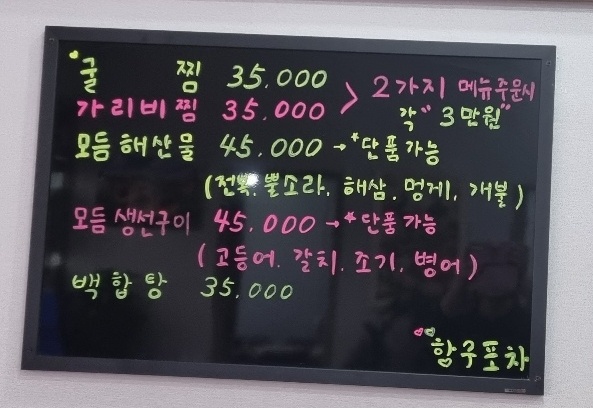 굴 찜 35.000
가리비찜 35.000 > 2가지 메뉴주문시
각 "3만원"
모듬해산물 45.000 → *단품가능
(전복. 뿔소라. 해삼. 멍게. 개불)
모듬생선구이 45.000 → *단품가능
(고등어. 갈치. 조기. 병어)
백합탕 35.000
항구포차